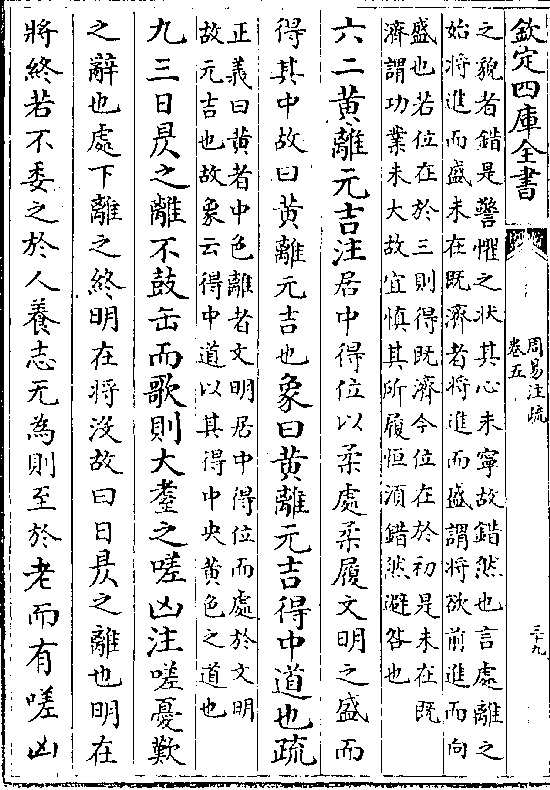 欽定四庫全書
周易注疏
卷五
三十九
之貌者錯是警懼之狀其心未寧故錯然也言處離之
始將進而盛未在既濟者將進而盛謂將欲前進而向
盛也若位在於三則得既濟今位在於初是未在既
濟謂功業未大故宜慎其所履恒須錯然避咎也
六二黄離元吉注居中得位以柔處柔履文明之盛而
得其中故曰黄離元吉也象曰黄離元吉得中道也疏
正義曰黄者中色離者文明居中得位而處於文明
故元吉也故象云得中道以其得中央黄色之道也
九三日昃之離不鼓缶而歌則大耋之嗟凶注嗟憂歎
之辭也處下離之終明在將没故曰日昃之離也明在
將終若不委之於人養志无為則至於老而有嗟凶